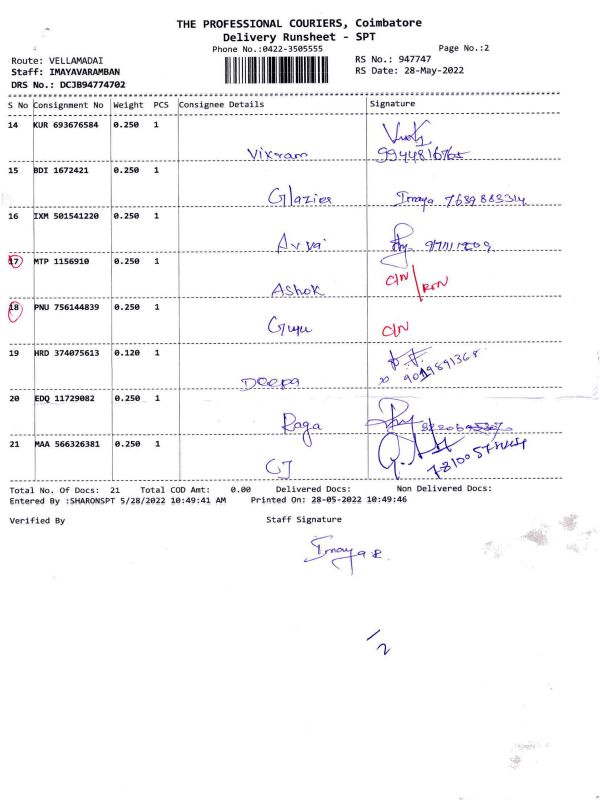 THE PROFESSIONAL COURIERS, Coimbatore
Delivery Runsheet - SPT
Phone No.:0422-3505555 Page No.:2
Route: VELLAMADAI RS No.: 947747
Staff: IMAYAVARAMBAN RS Date: 28-May-2022
DRS No.: DCJB94774702
S No Consignment No Weight PCS Consignee Details Signature
14 KUR 693676584 0.250 1
Vikram
15 BDI 1672421 0.250 1
Glazier Imaya 7689883314
16 IXM 501541220 0.250 1
17 MTP 1156910 0.250 1 C/N
Ashok
18 PNU 756144839 0.250 1
Guru C/N
19 HRD 374075613 0.120 1
Deepa 9019891368
20 EDQ 11729082 0.250 1
Raga
21 MAA 566326381 0.250 1
Total No. Of Docs: 21 Total COD Amt: 0.00 Delivered Docs: Non Delivered Docs:
Entered By :SHARONSPT 5/28/2022 10:49:41 AM Printed On: 28-05-2022 10:49:46
Verified By Staff Signature
2